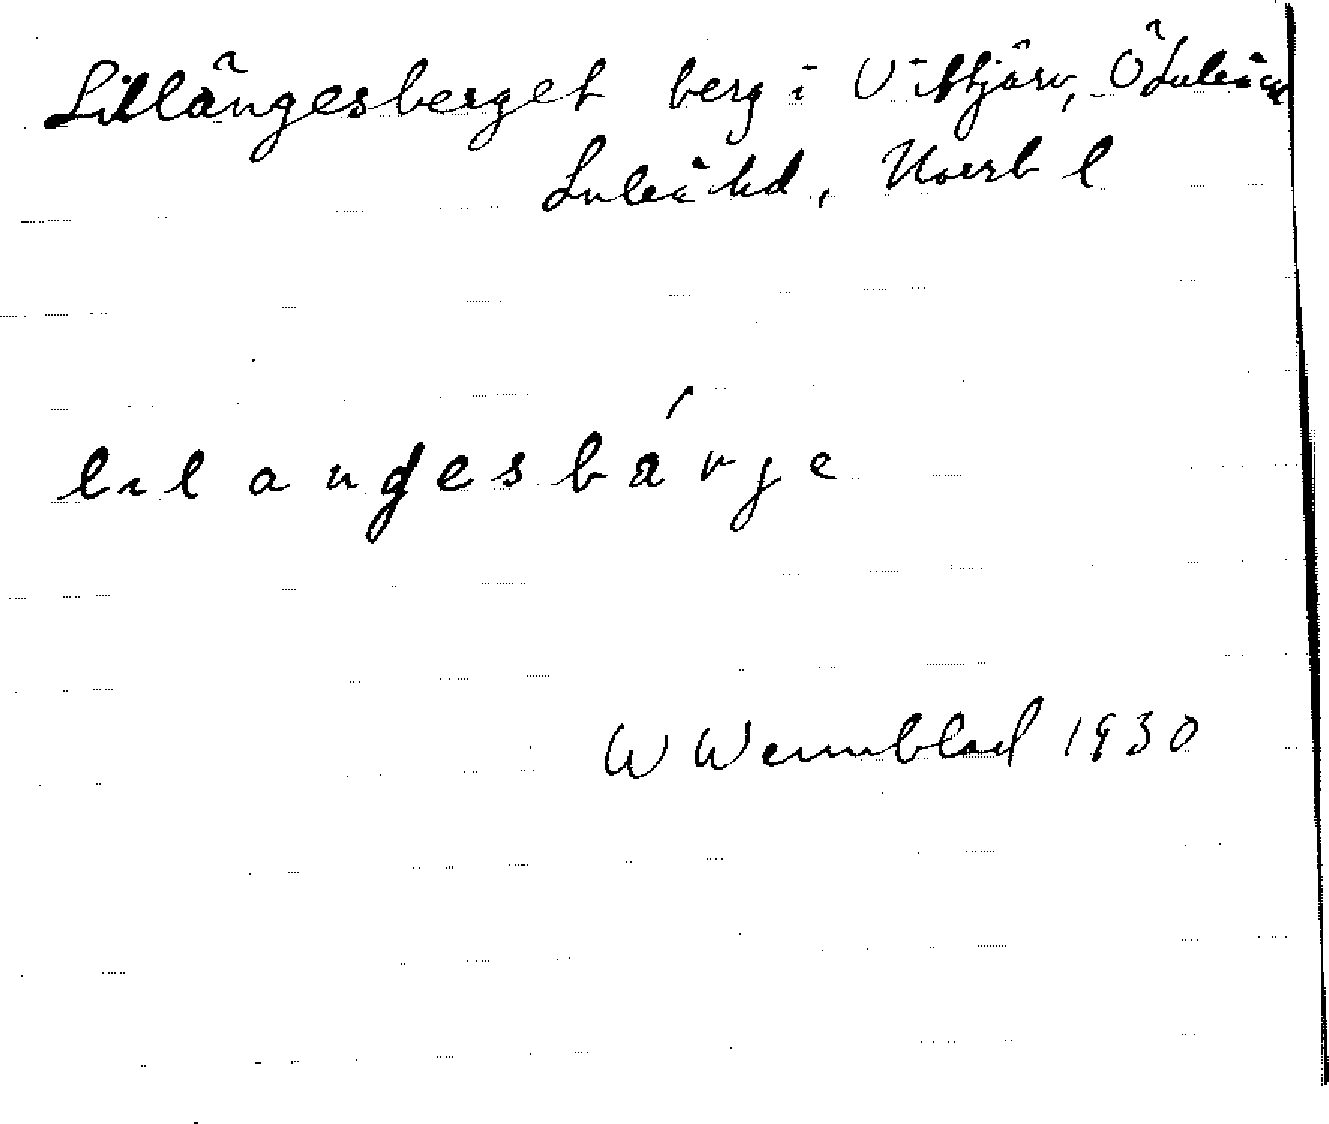 Lillängesberget berg i Vittjärv, Ö Luleå sn
Luleå hd, Norrb l
lılangesbárje
W Wennblad 1930